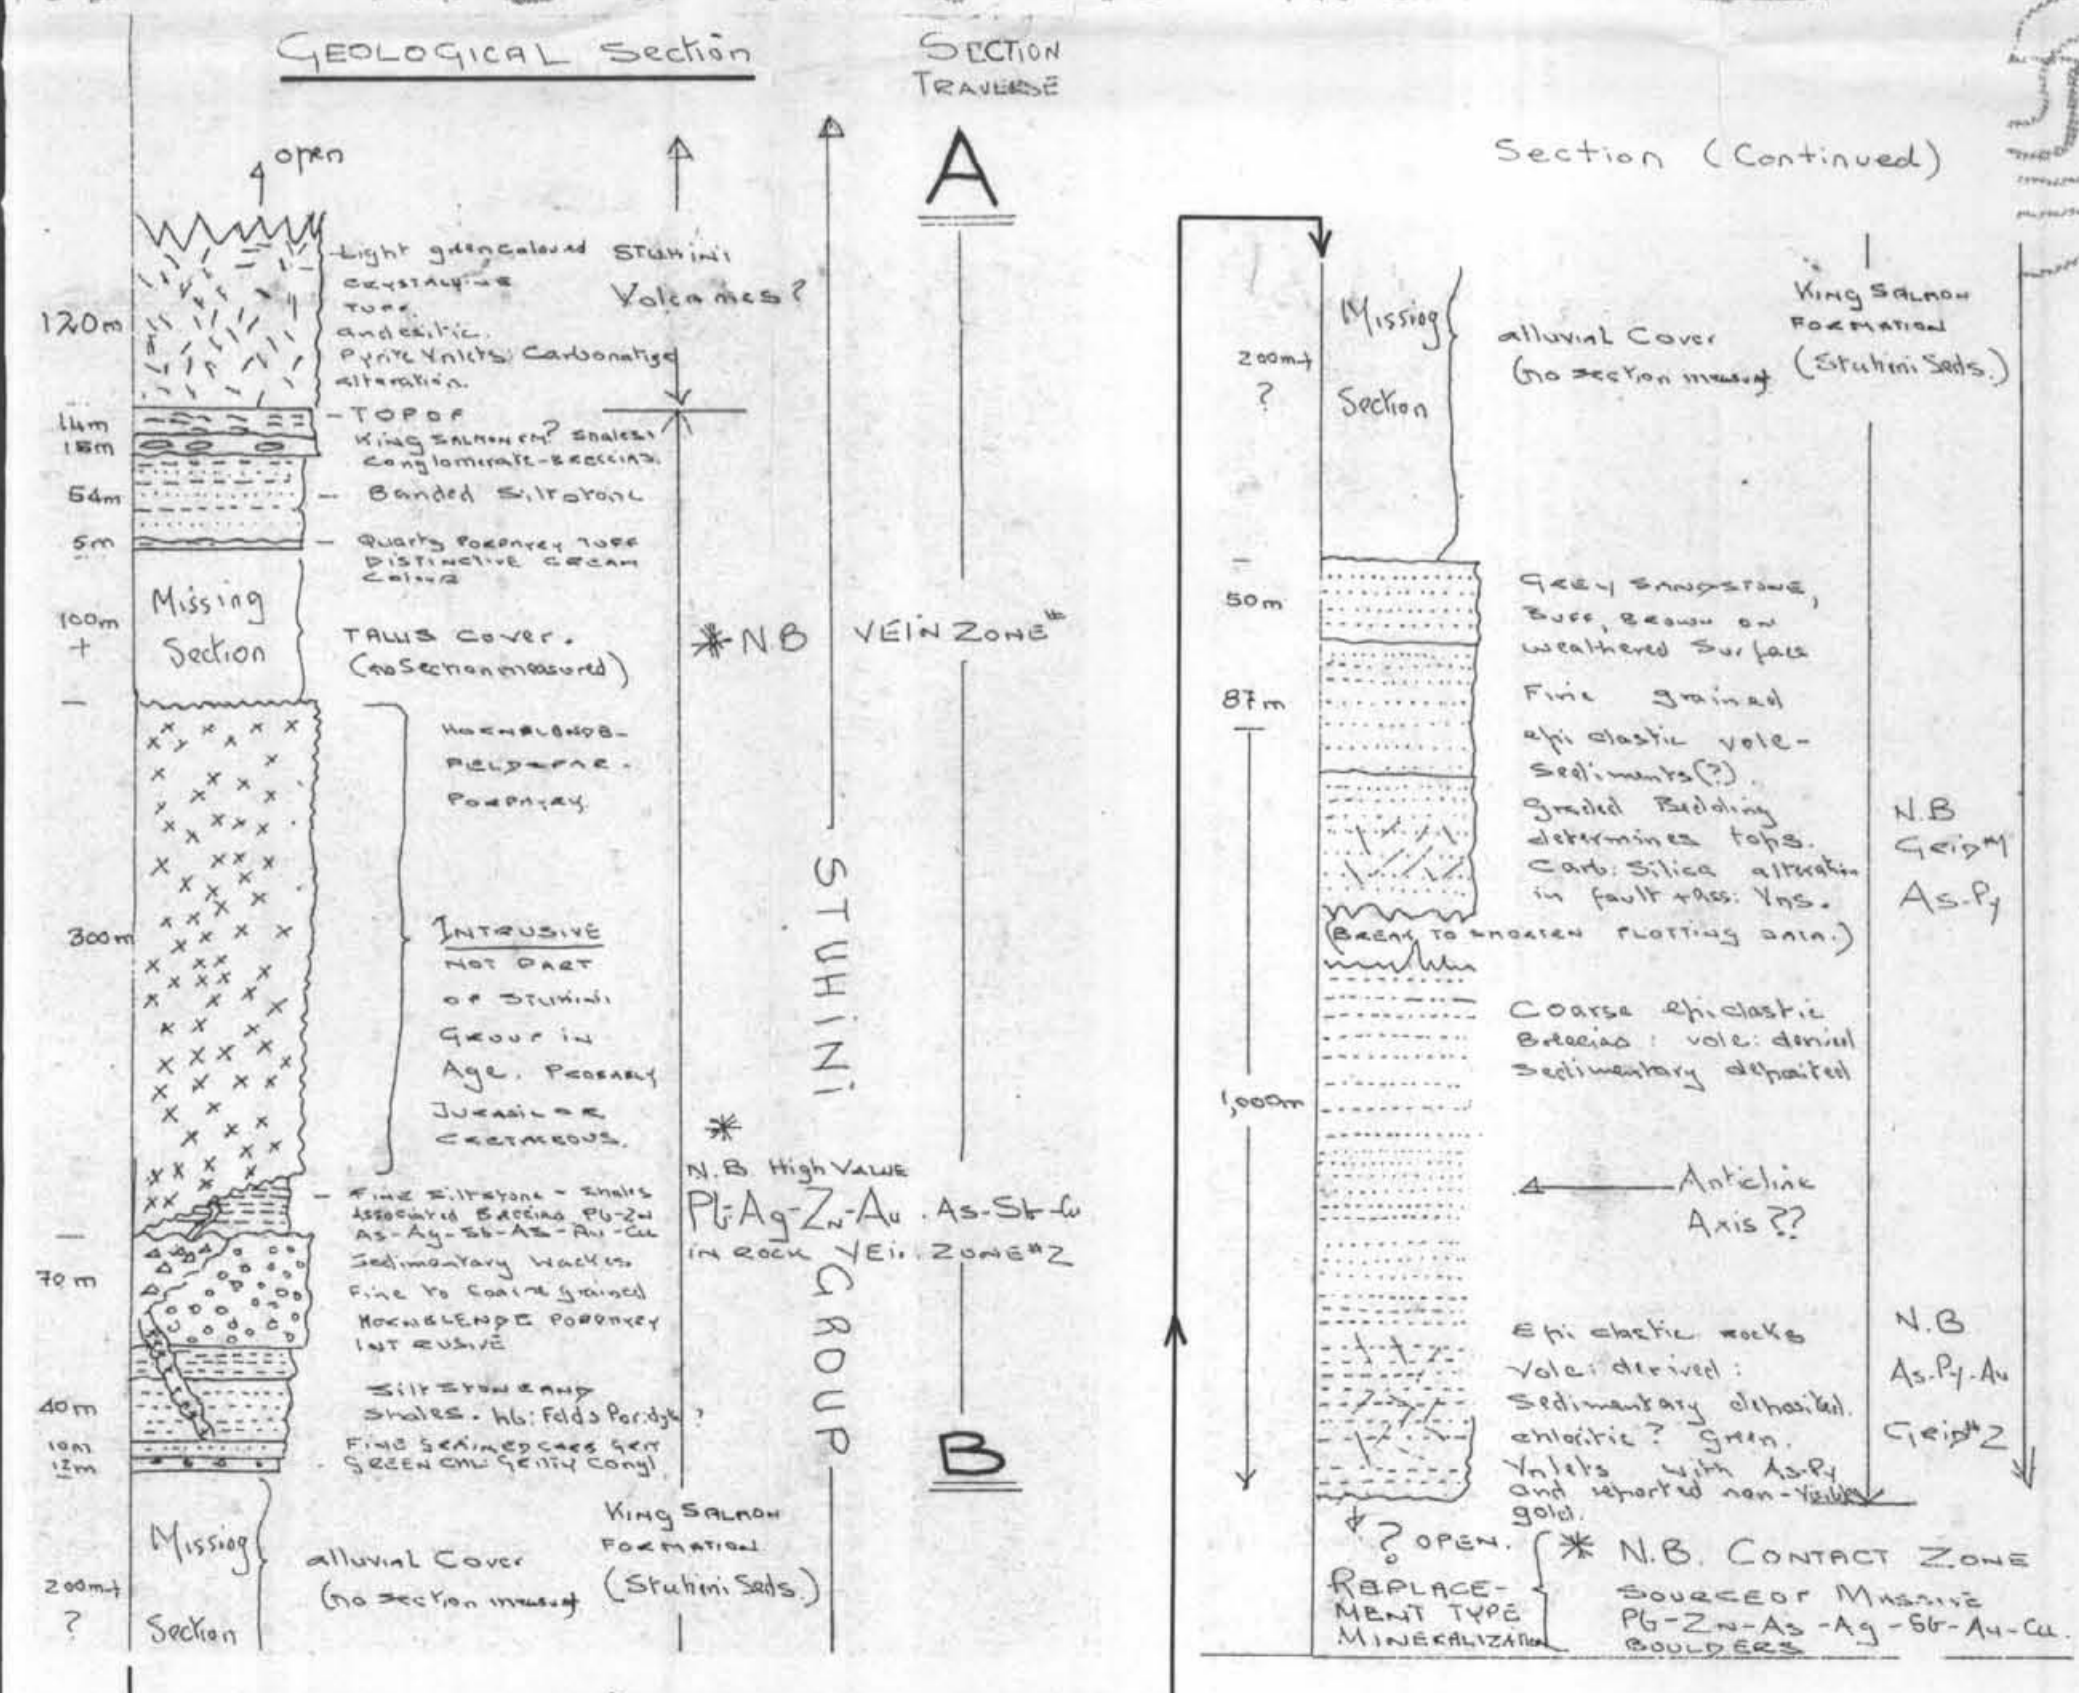 GEOLOGICAL Section
SECTION
TRAVERSE
A
open
120m
Light green coloured
CRYSTALLINE
TUFF.
andesitic.
Pyrite Vnlets: Carbonatized
alteration.
STUHINI
Volcanics?
14m
15m
- TOP OF
KING SALMON FM? Shales:
Conglomerate-BRECCIAS.
54m
- Banded Siltstone
5m
- Quartz PORPHYRY TUFF
DISTINCTIVE CREAM
COLOUR
100m
+
Missing
Section
TALUS COVER.
(no Section measured)
* N B
VEIN ZONE #
HORNBLENDE-
FELDSPAR-
PORPHYRY.
300m
INTRUSIVE
NOT PART
OF STUHINI
GROUP in
Age. PROBABLY
JURASSIC OR
CRETACEOUS.
STUHINI GROUP
*
N.B. High VALUE
Pb-Ag-Zn-Au. As-Sb-Cu
IN ROCK VEIN ZONE #2
- FINE SILTSTONE - Shales
ASSOCIATED BRECCIAS Pb-Zn
As-Ag-Sb-As-Au-Cu
70m
Sedimentary Wackes.
Fine to Coarse grained
HORNBLENDE PORPHYRY
INTRUSIVE
40m
SILTSTONE AND
Shales. hb: Felds Por: dyk?
10m
12m
FINE GRAINED
GREEN CHL: GRITTY CONGL
B
Missing
Section
200m+
?
alluvial Cover
(no section measured
KING SALMON
FORMATION
(Stuhini Seds.)
Section (Continued)
200m+
?
Missing
Section
alluvial Cover
(no section measured
KING SALMON
FORMATION
(Stuhini Seds.)
50m
GREY SANDSTONE,
BUFF, BROWN ON
weathered Surface
87m
Fine grained
epiclastic volc-
sediments(?).
Graded Bedding
determines tops.
Carb: Silica alteration
in fault + ass: Vns.
N.B
Grid #1
As-Py
(BREAK TO SHORTEN PLOTTING DATA.)
1,000m
Coarse epiclastic
Breccias: volc: derived
Sedimentary deposited
Anticline
Axis??
Epiclastic rocks
Volc: derived:
Sedimentary deposited.
chloritic? Green.
Vnlets with As-Py
and reported non-visible
gold.
N.B
As-Py-Au
Grid #2
? OPEN.
REPLACE-
MENT TYPE
MINERALIZATION
* N.B. CONTACT ZONE
SOURCE OF MASSIVE
Pb-Zn-As-Ag-Sb-Au-Cu.
BOULDERS